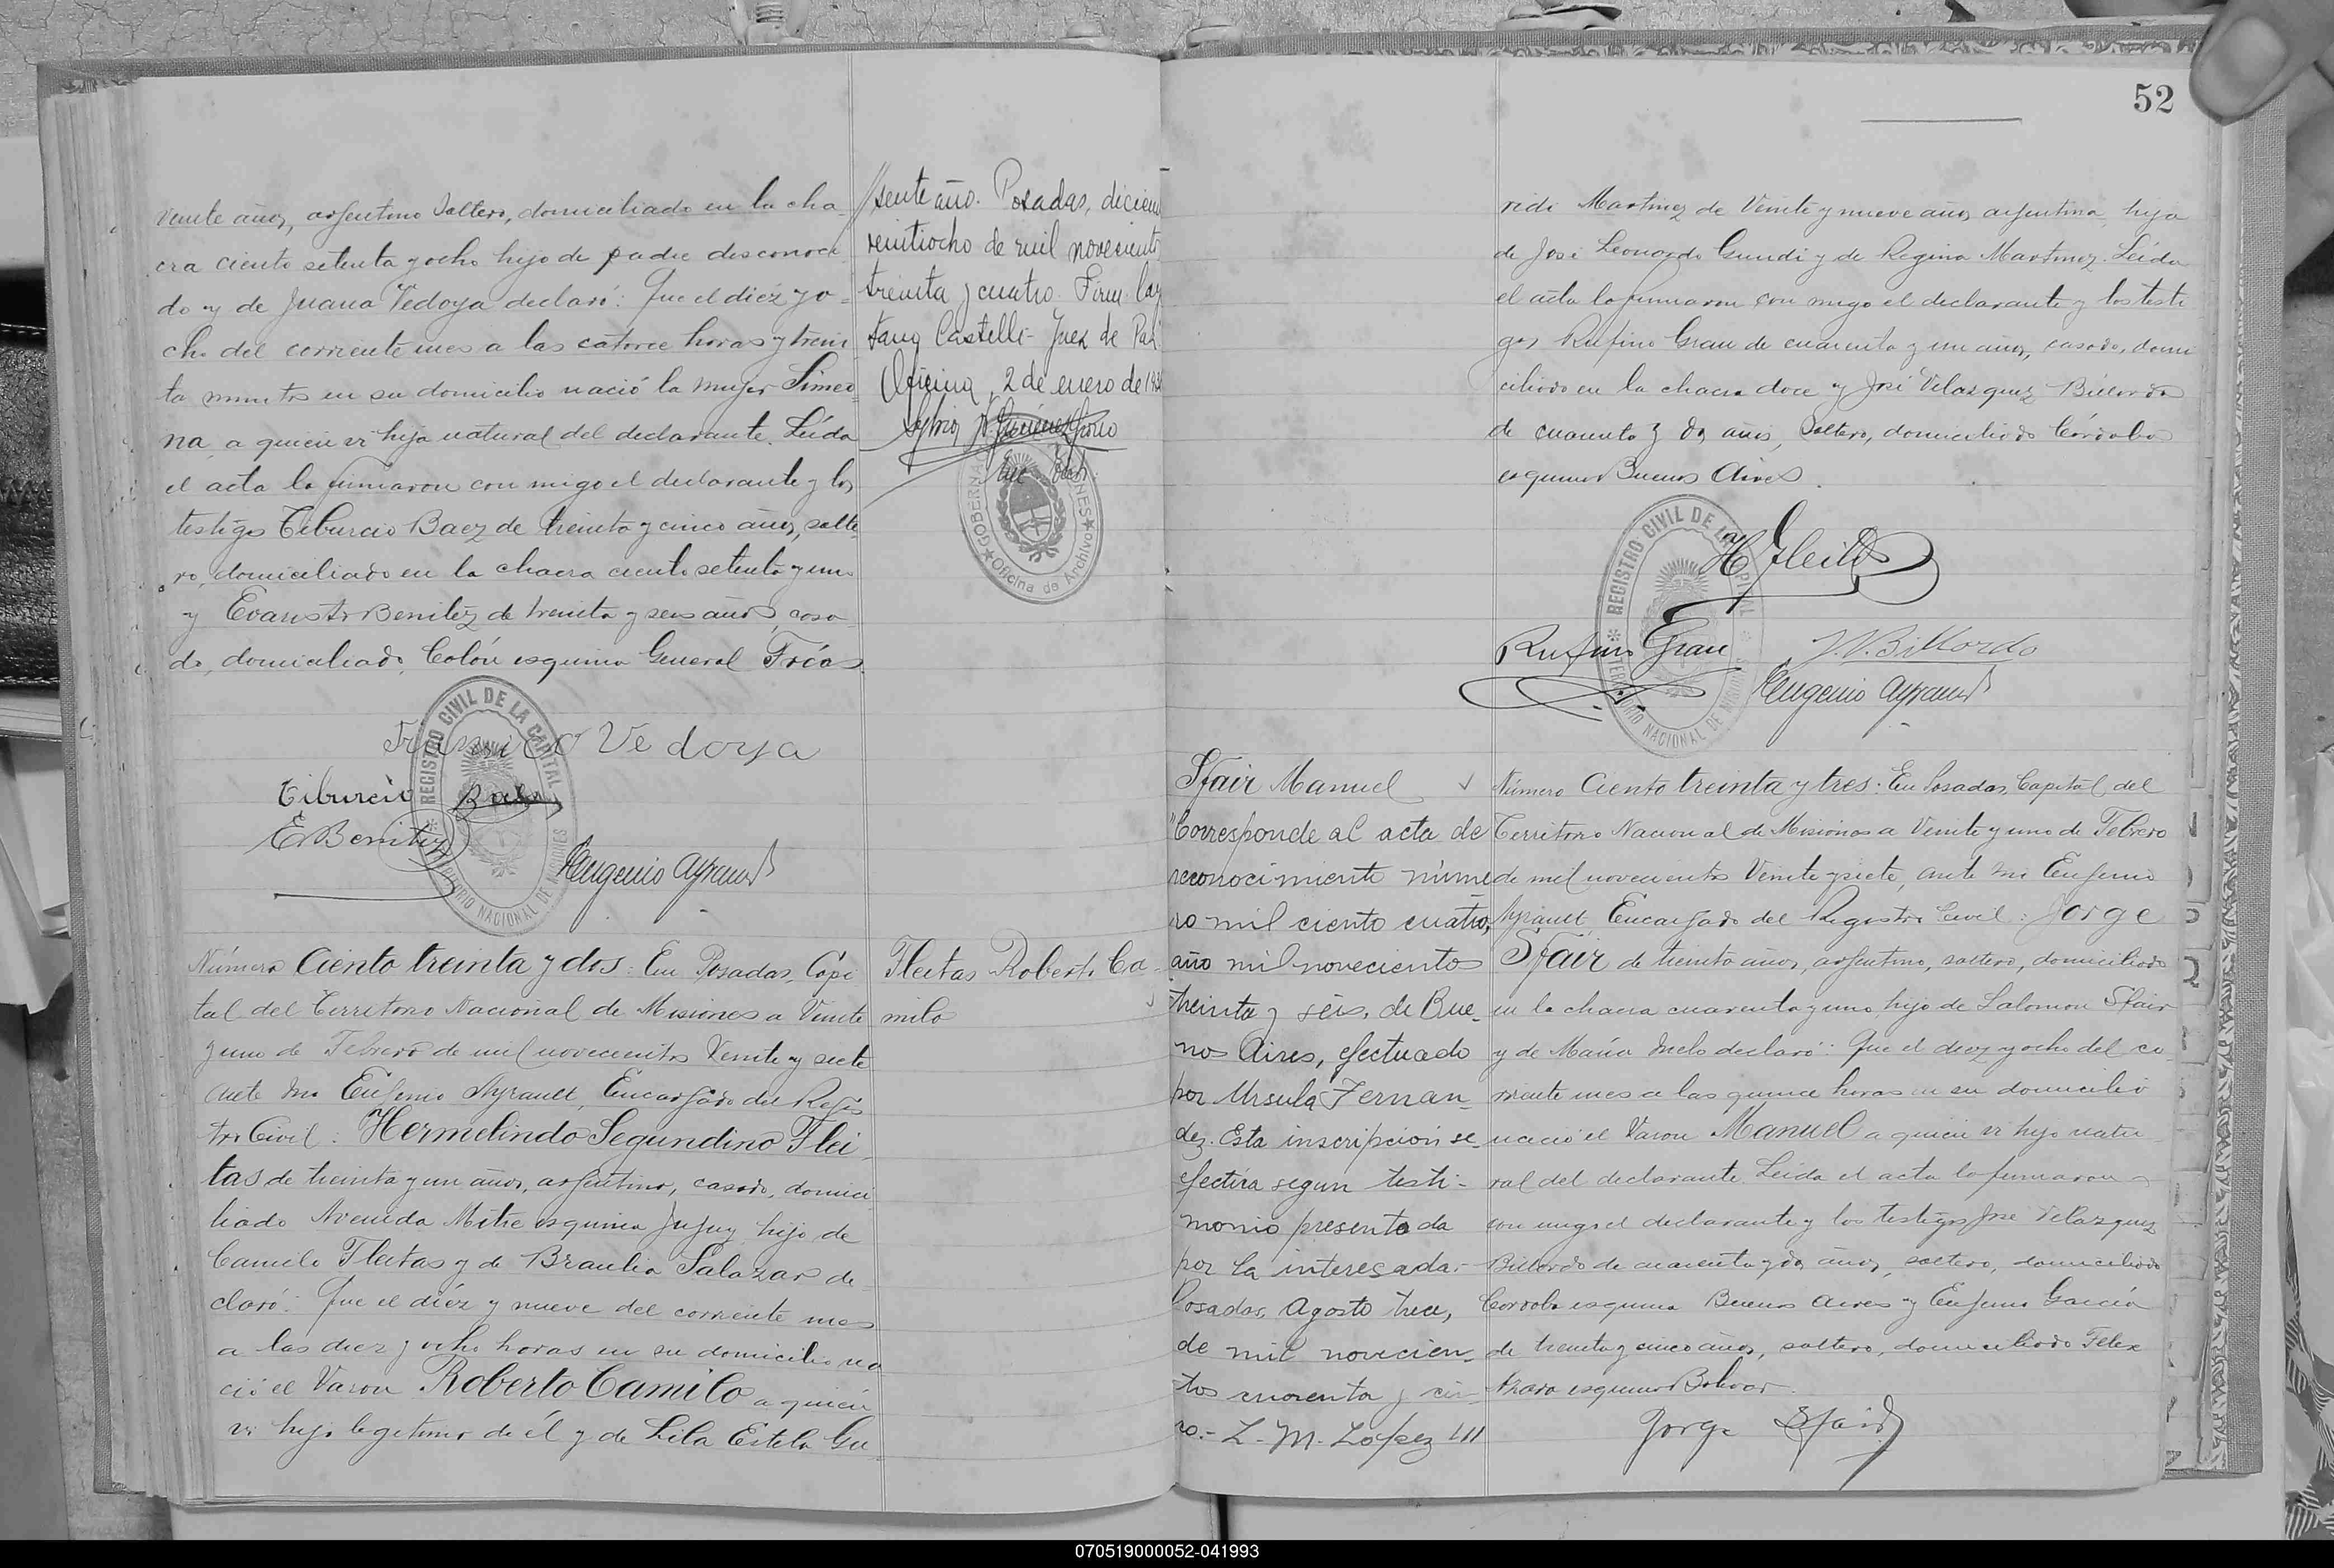 veinte años, argentino soltero, domiciliado en la cha-
cra ciento setenta y ocho hijo de padre desconoci
do y de Juana Vedoya declaró: Que el diéz y o-
cho del corriente mes a las catorce horas y trein
ta minutos en su domicilio nació la mujer Simeo-
na, a quien vi hija natural del declarante. Leída
el acta la firmaron con migo el declarante y los
testigos Tiburcio Baez de treinta y cinco años, solte
ro, domiciliado en la chacra ciento setenta y uno
y Evaristo Benitez de treinta y seis años, casa
do, domiciliado, Colón esquina General Frías.
Vedoya
Tiburcio Baez
E Benitez
Eugenio Ayrault
REGISTRO CIVIL DE LA CAPITAL
TERRITORIO NACIONAL DE MISIONES
Número Ciento treinta y dos: En Posadas, Capi
tal del Territorio Nacional de Misiones a Veinte
y uno de Febrero de mil novecientos Veinte y siete
ante mi Eugenio Ayrault, Encargado del Regis
tro Civil: Hermelindo Segundino Flei
tas de treinta y un años, argentino, casado, domici
liado Avenida Mitre esquina Jujuy hijo de
Camilo Fleitas y de Braulia Salazar de
claró: Que el diéz y nueve del corriente mes
a las diez y ocho horas en su domicilio na
ció el Varon Roberto Camilo a quien
vi hijo legitimo de él y de Lila Estela Gu-
sente año. Posadas, diciem
veintiocho de mil noveciento
treinta y cuatro. Firm.
tano Castelli- Juez de Paz
Oficina, 2 de enero de 193
GOBERNA
Oficina de Archivos
Fleitas Roberto Ca-
milo
52
ridi Martinez de Veinte y nueve años argentina, hija
de José Leonardo Gundi y de Regina Martinez. Leída
el acta la firmaron con migo el declarante y los testi
gos Rufino Grau de cuarenta y un años, casado, domi
ciliado en la chacra doce y José Velazquez Billordo
de cuarenta y dos años, soltero, domiciliado Córdoba
esquina Buenos Aires.
H Fleitas
Rufino Grau
J.V. Billordo
Eugenio Ayrault
REGISTRO CIVIL DE LA CAPITAL
TERRITORIO NACIONAL DE MISIONES
Sfair Manuel
"Corresponde al acta de
reconocimiento núme
ro mil ciento cuatro,
año mil novecientos
treinta y séis, de Bue-
nos Aires, efectuado
por Ursula Fernan-
dez. Esta inscripción se
efectúa segun testi-
monio presentada
por la interesada.-
Posadas, Agosto trece,
de mil novecien-
tos cuarenta y cin-
co.- L. M. López
Número Ciento treinta y tres: En Posadas, Capital del
Territorio Nacional de Misiones a Veinte y uno de Febrero
de mil novecientos Veinte y siete, ante mi Eugenio
Ayrault Encargado del Registro Civil: Jorge
Sfair de treinta años, argentino, soltero, domiciliado
en la chacra cuarenta y uno, hijo de Salomon Sfair
y de María Melo declaró: Que el diez y ocho del co-
rriente mes a las quince horas en su domicilio
nació el Varon Manuel a quien vi hijo natu
ral del declarante. Leída el acta la firmaron
con migo el declarante y los testigos José Velazquez
Billordo de cuarenta y dos años, soltero, domiciliado
Cordoba esquina Buenos Aires y Eugenio García
de treinta y cinco años, soltero, domiciliado Felix
Azara esquina Bolivar.
Jorge Sfair
070519000052-041993